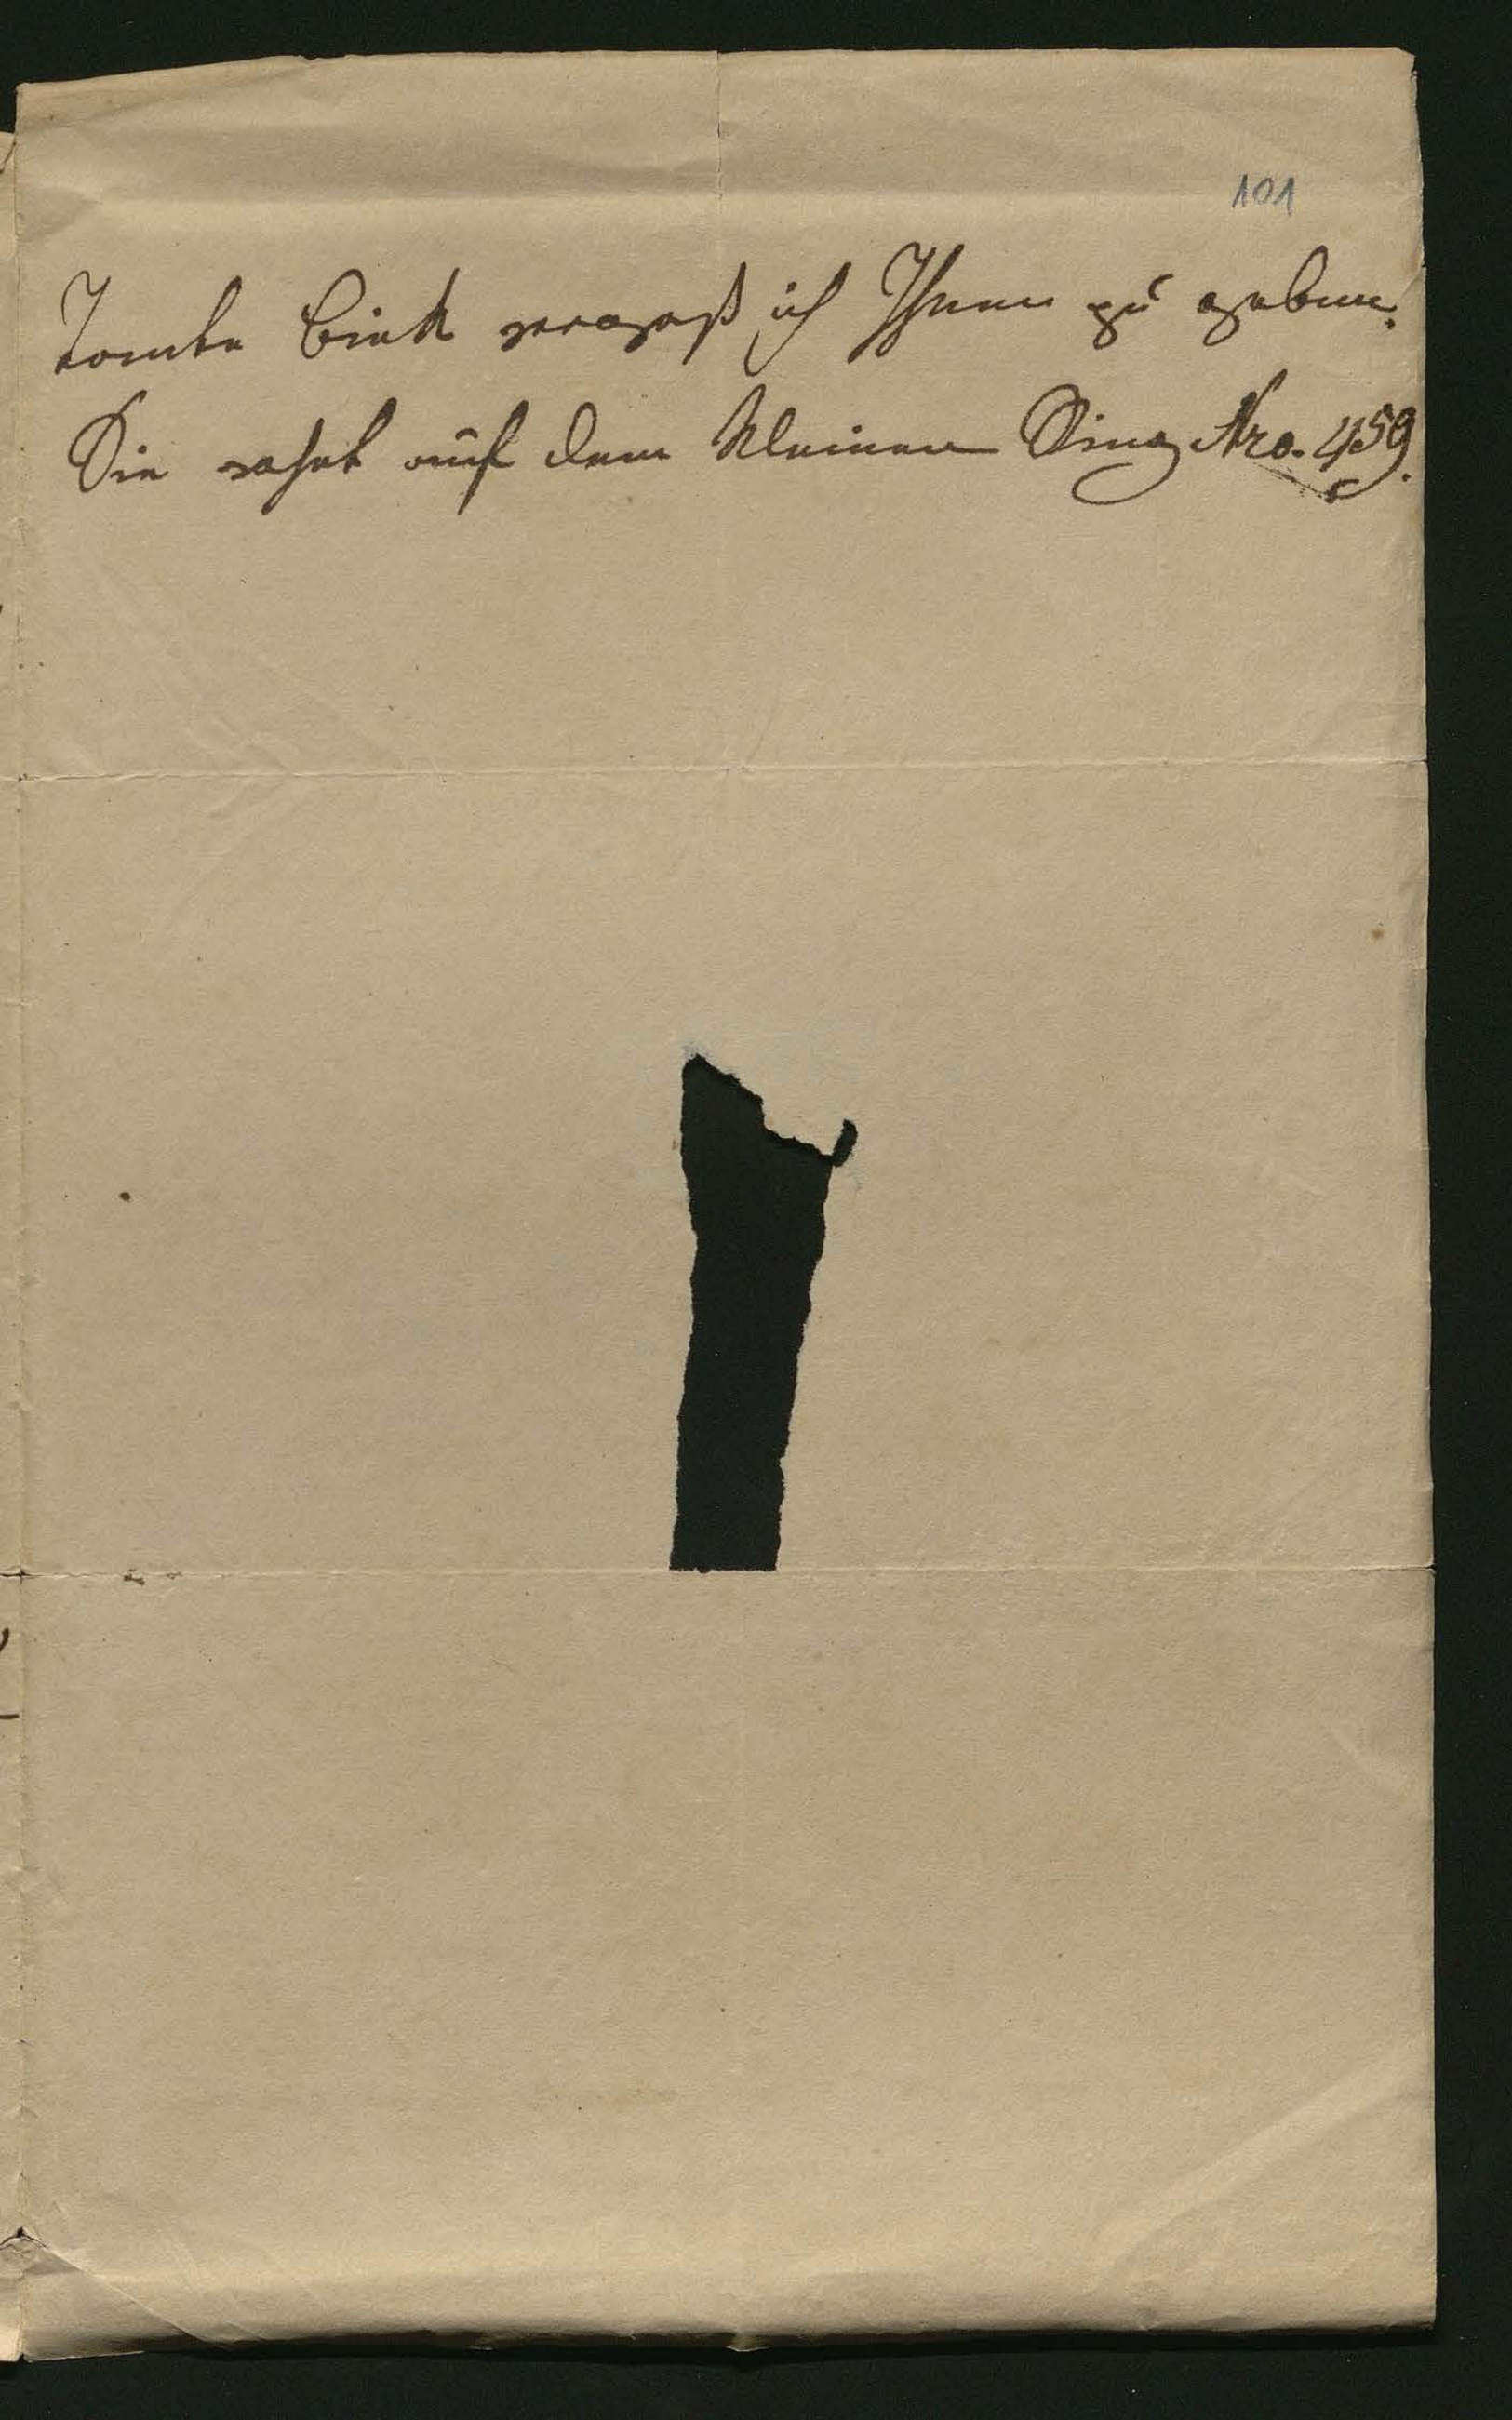 101
Tante Bietk vergaß ich Ihnen zu geben.
Sie wohnt auf dem kleinen Ring Nro. 459.